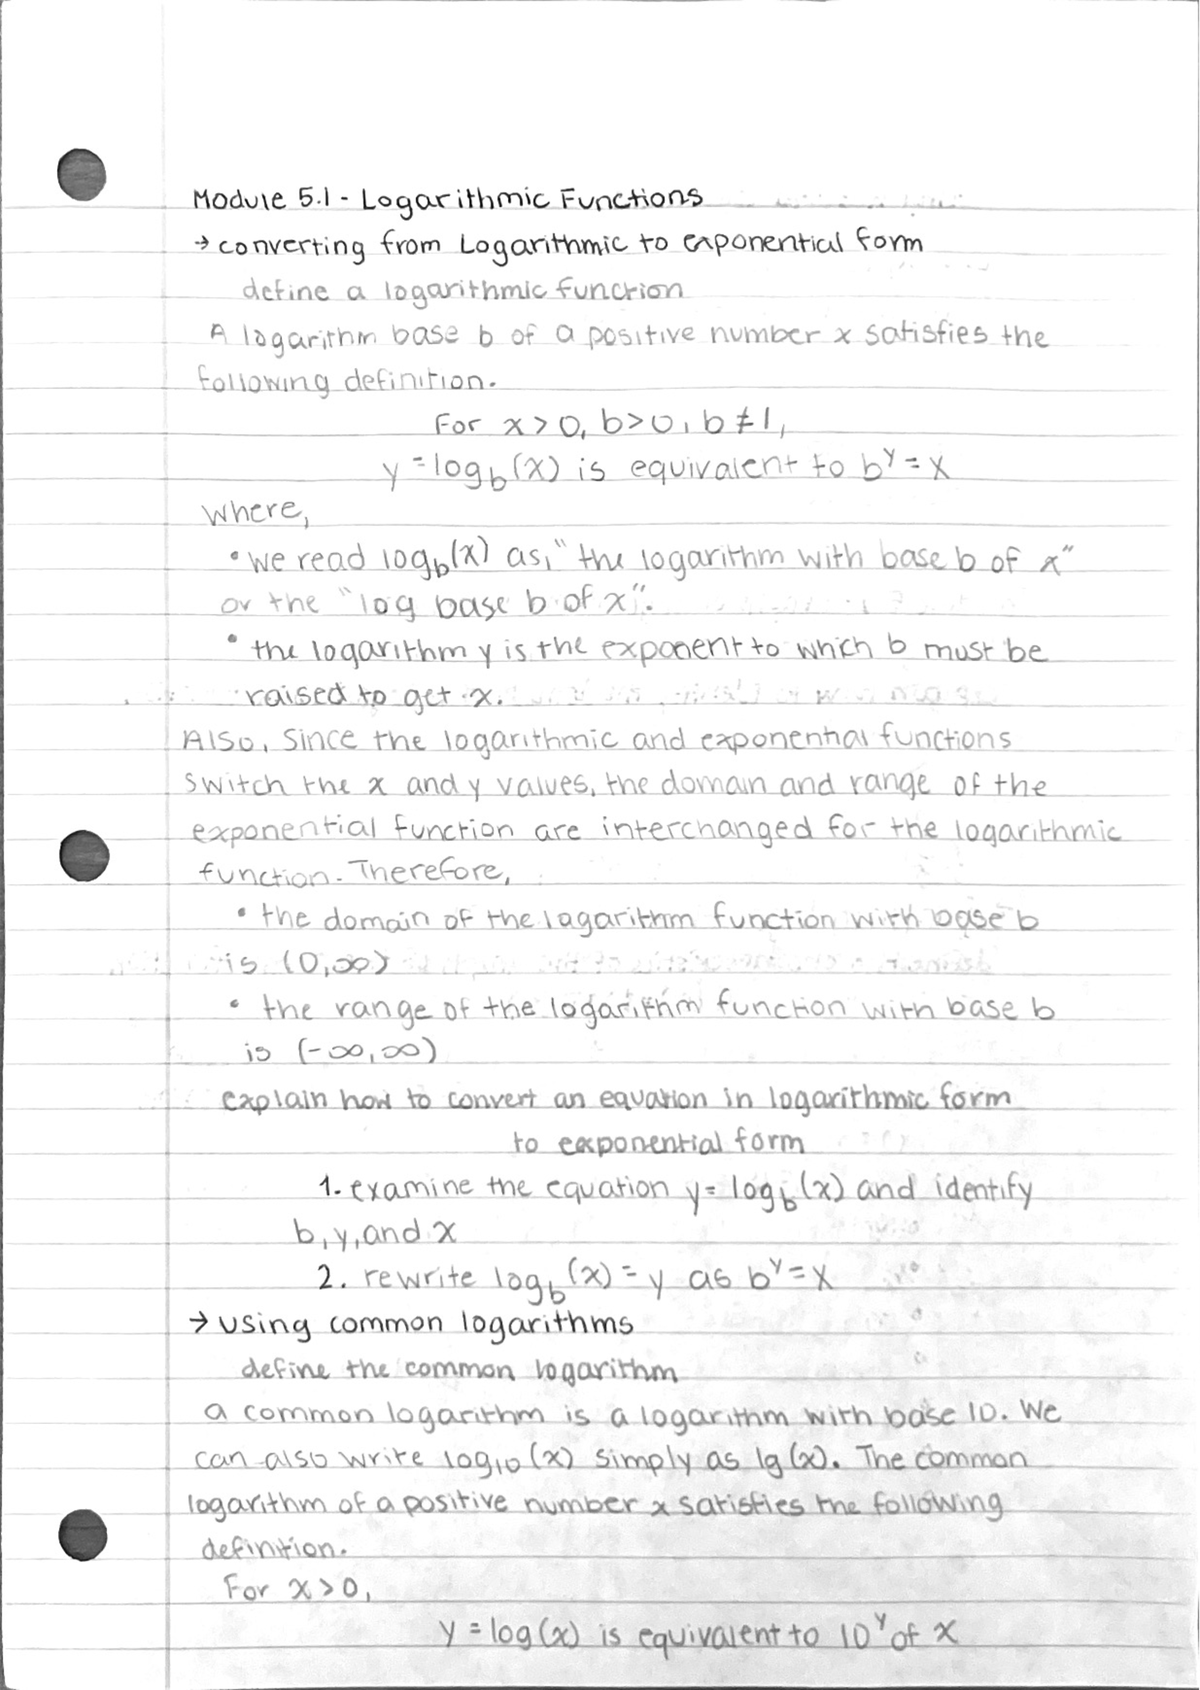 Module 5.1 - Logarithmic Functions
→ converting from Logarithmic to exponential form
define a logarithmic function
A logarithm base b of a positive number x satisfies the
following definition.
For x > 0, b > 0, b ≠ 1,
y = log_b(x) is equivalent to b^y = x
where,
• we read log_b(x) as, "the logarithm with base b of x"
or the "log base b of x".
• the logarithm y is the exponent to which b must be
raised to get x.
Also, since the logarithmic and exponential functions
switch the x and y values, the domain and range of the
exponential function are interchanged for the logarithmic
function. Therefore,
• the domain of the logarithm function with base b
is (0,∞)
• the range of the logarithm function with base b
is (-∞,∞)
explain how to convert an equation in logarithmic form
to exponential form
1. examine the equation y = log_b(x) and identify
b, y, and x
2. rewrite log_b(x) = y as b^y = x
→ using common logarithms
define the common logarithm
a common logarithm is a logarithm with base 10. We
can also write log₁₀(x) simply as lg(x). The common
logarithm of a positive number x satisfies the following
definition.
For x > 0,
y = log(x) is equivalent to 10^y of x